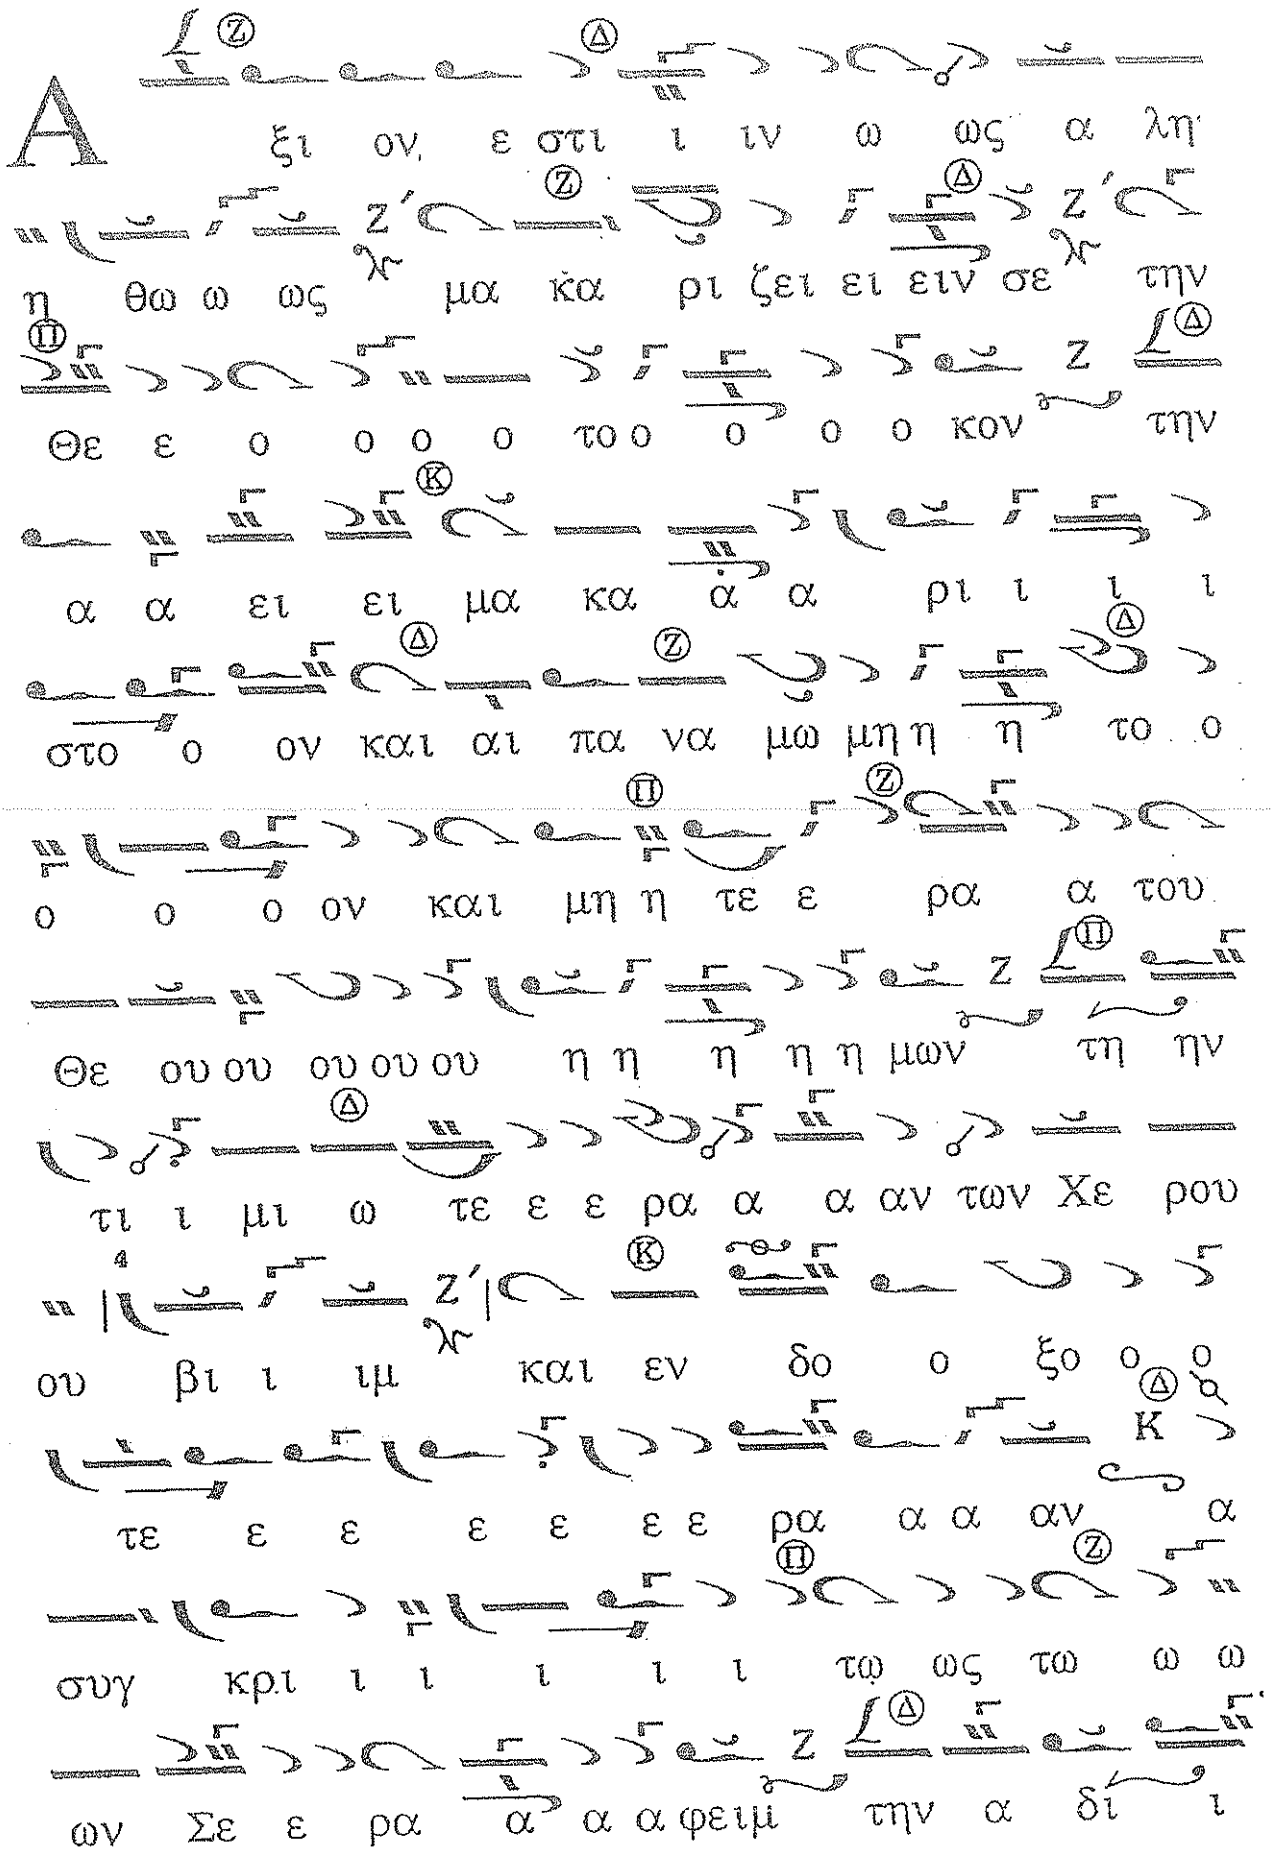 Ζ Δ
Α ξι ον ε στι ι ιν ω ως α λη
Ζ Δ
Ζ΄ Ζ΄
η θω ω ως μα κα ρι ζει ει ειν σε την
Π Δ
Ζ
Θε ε ο ο ο ο το ο ο ο ο κον την
Κ
α α ει ει μα κα α α ρι ι ι ι
Δ Ζ Δ
στο ο ον και αι πα να μω μη η η το ο
Π Ζ
ο ο ο ον και μη η τε ε ρα α του
Ζ Π
Θε ου ου ου ου ου η η η η η μων τη ην
Δ
τι ι μι ω τε ε ε ρα α α αν των Χε ρου
4 Ζ΄ Κ
ου βι ι ιμ και εν δο ο ξο ο ο
Δ
Κ
τε ε ε ε ε ε ε ρα α α αν α
Π Ζ
συγ κρι ι ι ι ι ι τω ως τω ω ω
Ζ Δ
ων Σε ε ρα α α α φειμ την α δι ι